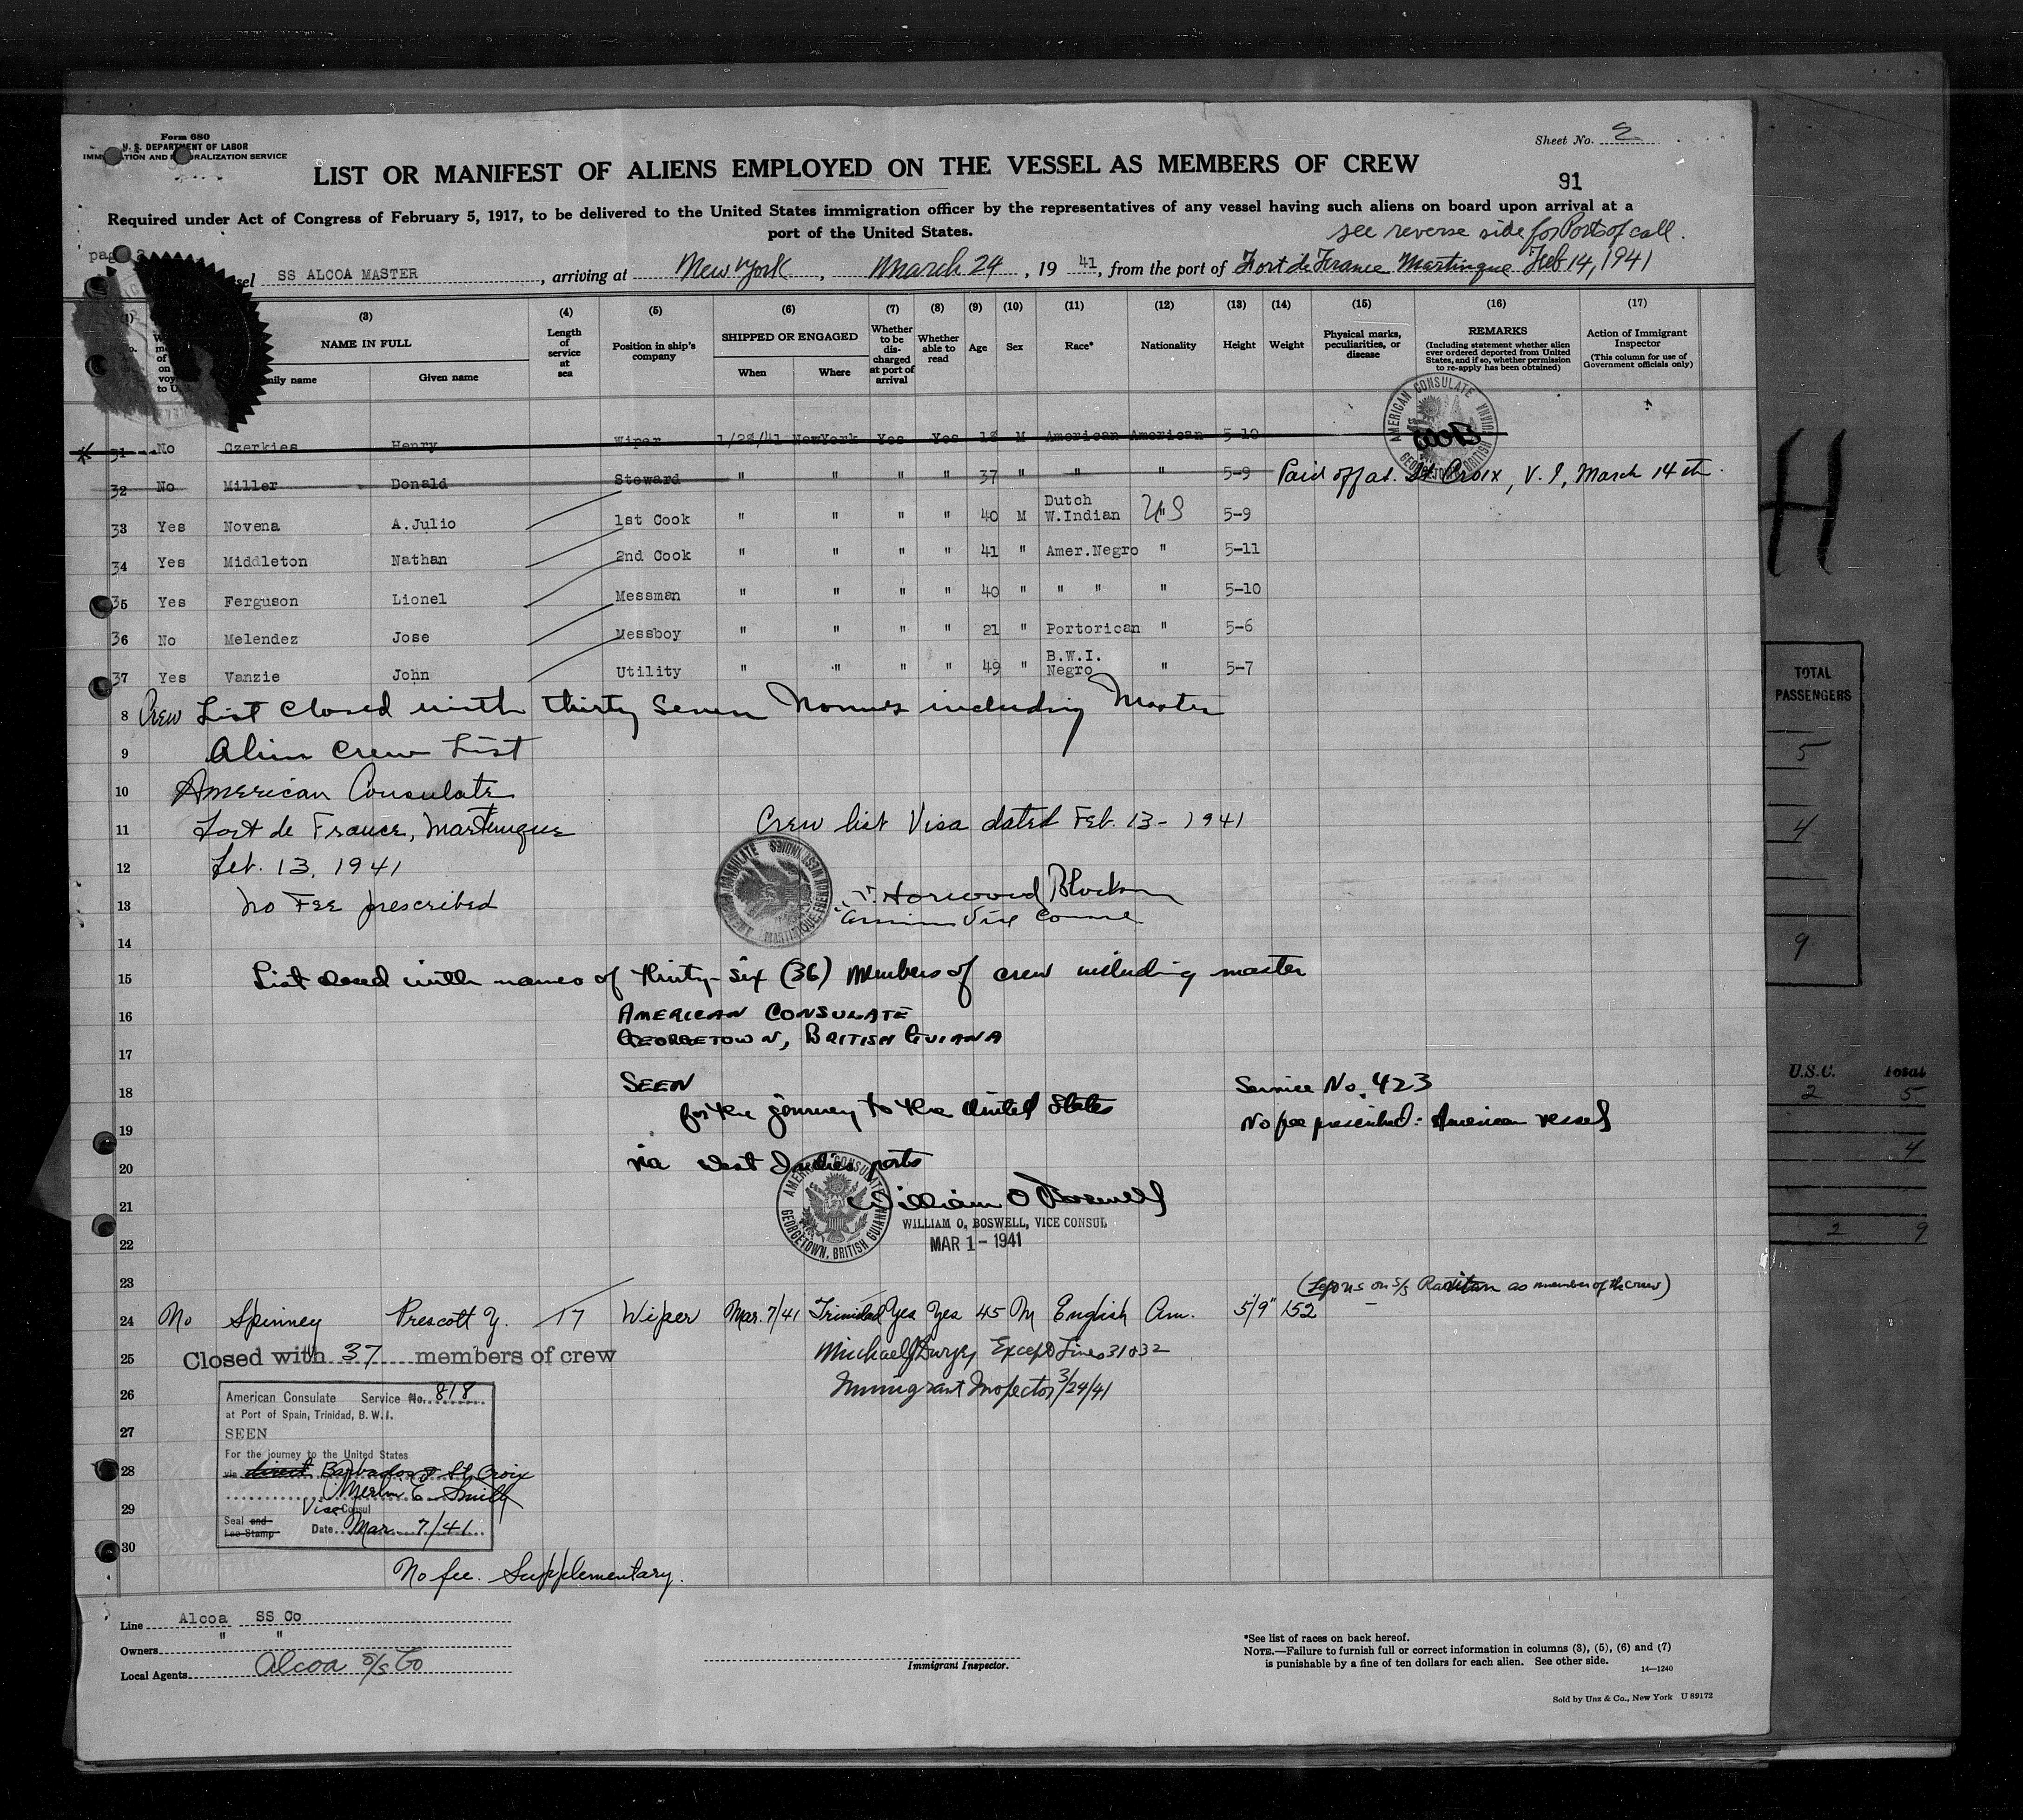 Form 680
U. S. DEPARTMENT OF LABOR
IMMIGRATION AND NATURALIZATION SERVICE
Sheet No. 2
LIST OR MANIFEST OF ALIENS EMPLOYED ON THE VESSEL AS MEMBERS OF CREW
91
Required under Act of Congress of February 5, 1917, to be delivered to the United States immigration officer by the representatives of any vessel having such aliens on board upon arrival at a
port of the United States.
see reverse side for Ports of call.
SS ALCOA MASTER, arriving at New York, March 24, 1941, from the port of Fort de France Martinique Feb 14, 1941
(3) (4) (5) (6) (7) (8) (9) (10) (11) (12) (13) (14) (15) (16) (17)
NAME IN FULL Length of service at sea Position in ship's company SHIPPED OR ENGAGED Whether to be discharged at port of arrival Whether able to read Age Sex Race* Nationality Height Weight Physical marks, peculiarities, or disease REMARKS (Including statement whether alien ever ordered deported from United States, and if so, whether permission to re-apply has been obtained) Action of Immigrant Inspector (This column for use of Government officials only)
Given name When Where
AMERICAN CONSULATE GEORGETOWN BRITISH GUIANA
31 No Czerkies Henry Wiper 1/28/41 NewYork Yes Yes 18 M American American 5-10
32 No Miller Donald Steward " " " " 37 " " " 5-9 Paid off at St Croix, V. I, March 14 th.
33 Yes Novena A.Julio 1st Cook " " " " 40 M Dutch W.Indian US 5-9
34 Yes Middleton Nathan 2nd Cook " " " " 41 " Amer.Negro " 5-11
35 Yes Ferguson Lionel Messman " " " " 40 " " " " 5-10
36 No Melendez Jose Messboy " " " " 21 " Portorican " 5-6
37 Yes Vanzie John Utility " " " " 49 " B.W.I. Negro " 5-7
8 Crew List Closed with thirty seven Names including Master
9 Alien Crew List
10 American Consulate
11 Fort de France, Martinique Crew list Visa dated Feb. 13 - 1941
12 Feb. 13, 1941
13 No Fee prescribed
American Vice Consul
14
15 List closed with names of thirty-six (36) members of crew including master
16 AMERICAN CONSULATE
17 GEORGETOWN, BRITISH GUIANA
18 SEEN Service No. 423
19 for the journey to the United States No fee prescribed: American vessel
20 via West Indies ports
AMERICAN CONSULATE GEORGETOWN, BRITISH GUIANA
21 William O Boswell
WILLIAM O. BOSWELL, VICE CONSUL
22 MAR 1 - 1941
23 as member of the crew)
24 No Spinney Prescott Y. 17 Wiper Mar. 7/41 Trinidad Yes Yes 45 M English Am. 5'9" 152
25 Closed with 37 members of crew Except Lines 31 & 32
26 Immigrant Inspector 3/24/41
American Consulate Service No. 818
at Port of Spain, Trinidad, B.W.I.
27 SEEN
For the journey to the United States
28 via direct Barbados & St. Croix
Merlin E. Smith
29 Vice Consul
Seal and Fee Stamp Date Mar. 7/41
30
No fee. Supplementary.
Line Alcoa SS Co
Owners " "
Local Agents Alcoa S/S Co
Immigrant Inspector.
*See list of races on back hereof.
NOTE.—Failure to furnish full or correct information in columns (3), (5), (6) and (7)
is punishable by a fine of ten dollars for each alien. See other side.
14—1240
Sold by Unz & Co., New York U 89172
H
TOTAL
PASSENGERS
5
4
9
U.S.C. Total
2 5
4
2 9